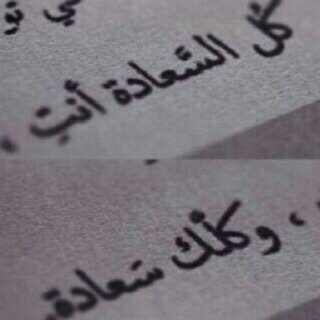 كُل السَّعادة أنتِ ،
، وكلّك سَعادة.